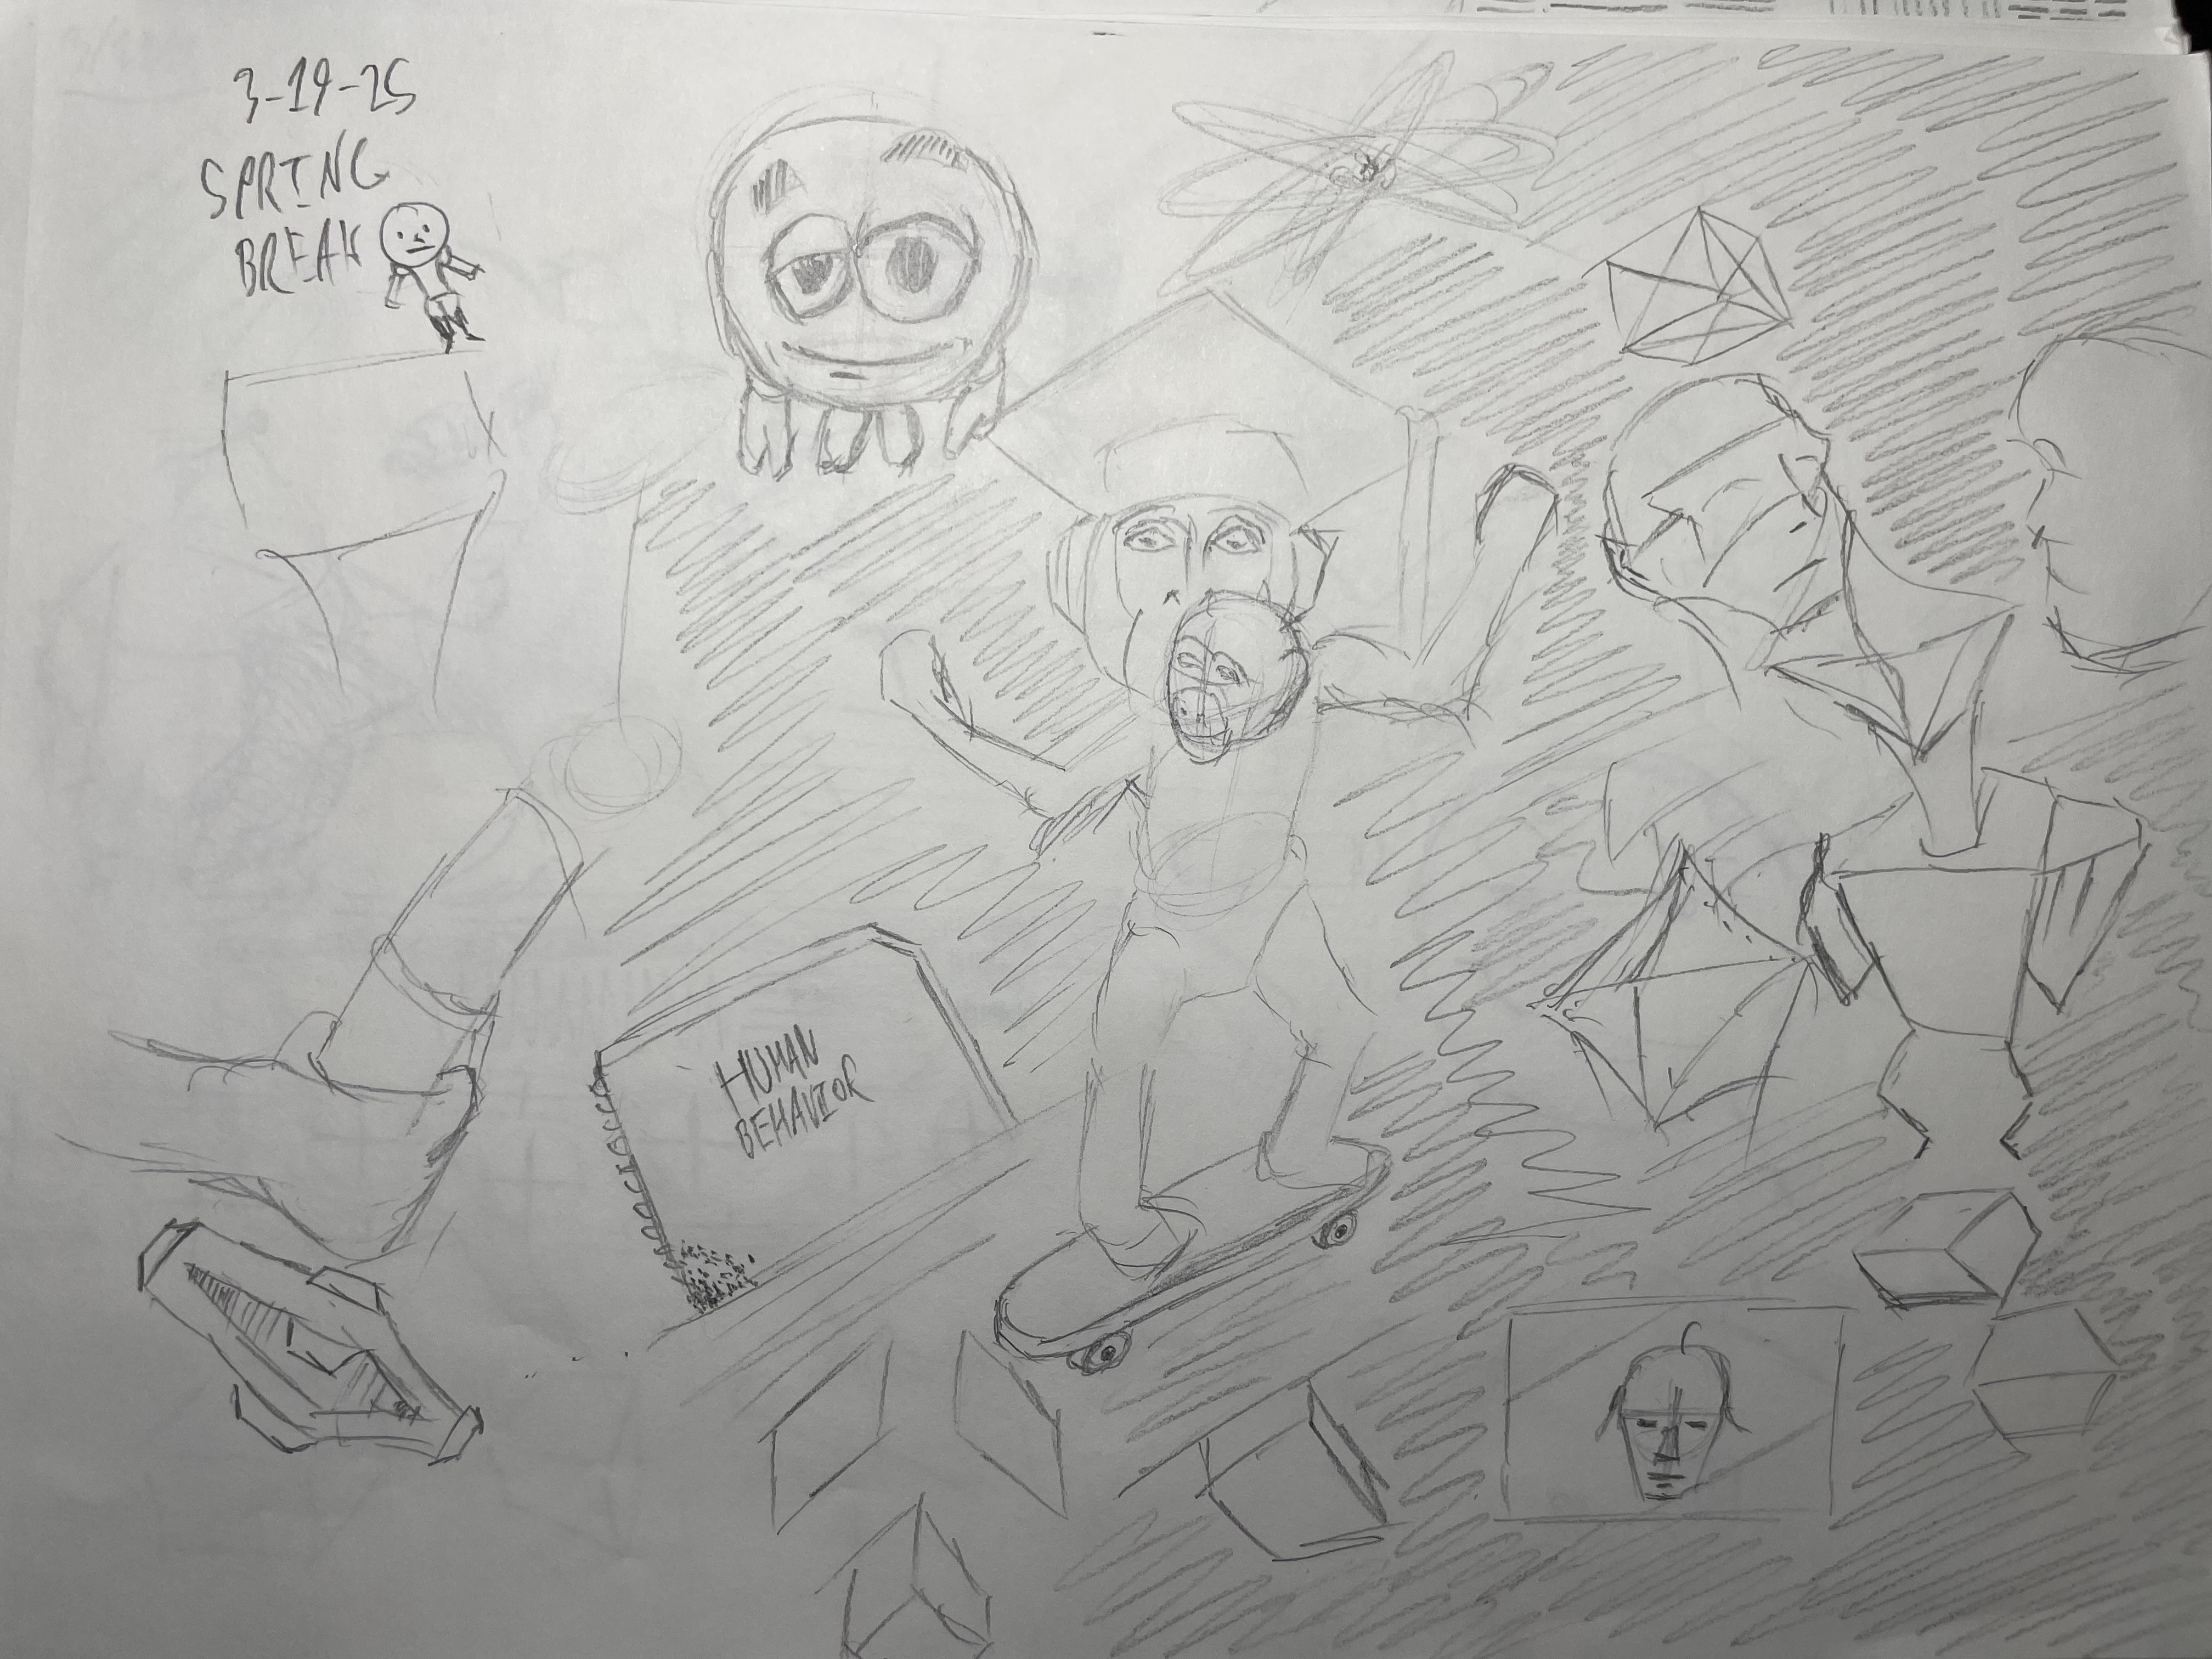 3-19-25
SPRING
BREAK
HUMAN
BEHAVIOR